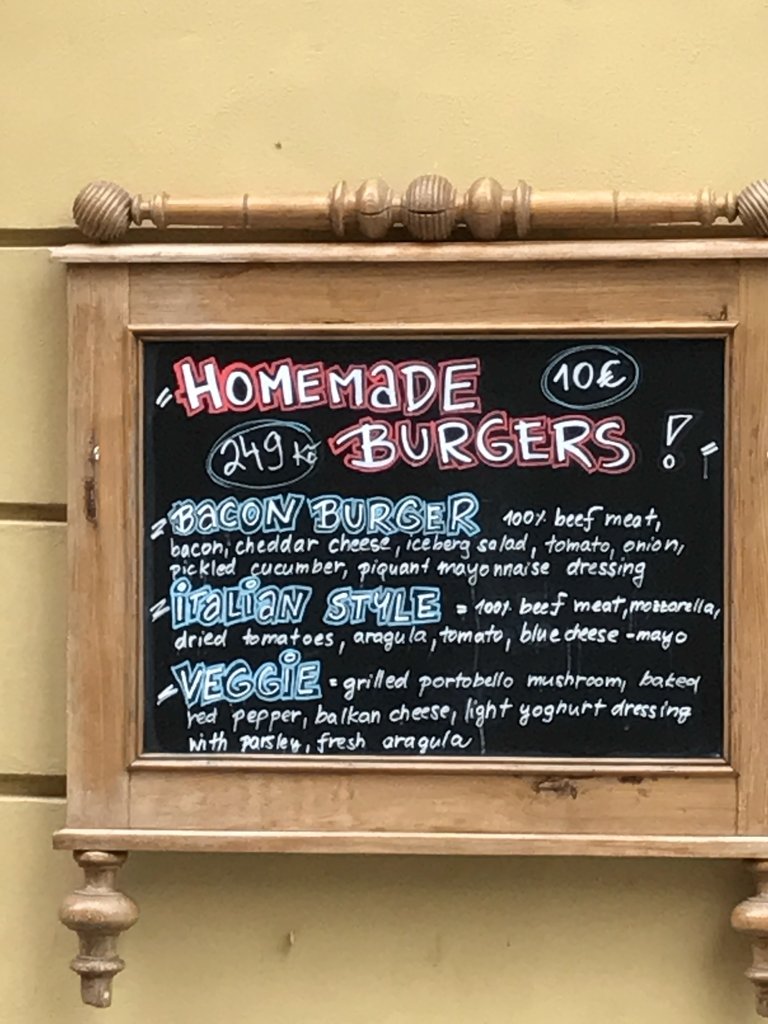 HOMEMaDE 10€
249 Kč BURGERS !
BaCON BURGER 100% beef meat,
bacon, cheddar cheese, iceberg salad, tomato, onion,
pickled cucumber, piquant mayonnaise dressing
iTaLiaN STYLE = 100% beef meat, mozzarella,
dried tomatoes, aragula, tomato, blue cheese -mayo
VEGGiE = grilled portobello mushroom, baked
red pepper, balkan cheese, light yoghurt dressing
with parsley, fresh aragula